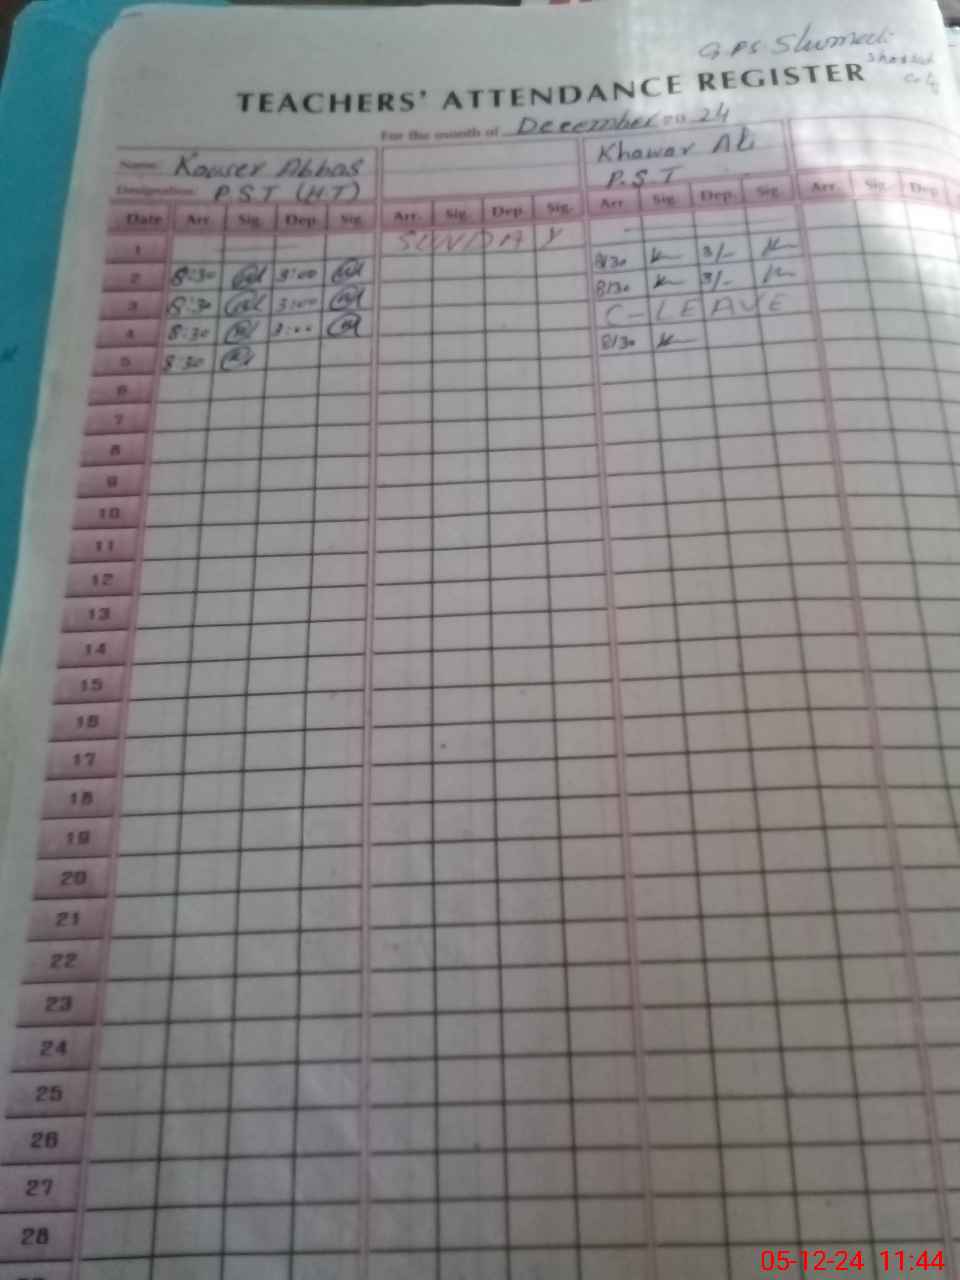 G.P.S. Shumedi
TEACHERS' ATTENDANCE REGISTER
For the month of December 2024
Name: Kouser Abbas Khawar Ali
Designation: P.S.T (H.T) P.S.T
Date Arr. Sig. Dep. Sig. Arr. Sig. Dep. Sig. Arr. Sig. Dep. Sig. Arr. Sig. Dep.
1 SUNDAY
2 8:30 3:00 8/30 3/-
3 8:30 3:00 8/30 3/-
4 8:30 3:00 C-LEAVE
5 8:30 8/30
6
7
8
9
10
11
12
13
14
15
16
17
18
19
20
21
22
23
24
25
26
27
28
05-12-24 11:44